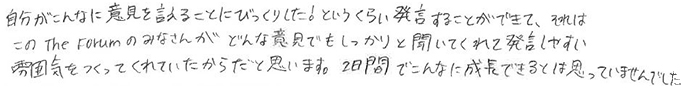 自分がこんなに意見を言えることにびっくりした!というくらい発言することができて、それは
この The Forumのみなさんが どんな意見でもしっかりと聞いてくれて発言しやすい
雰囲気をつくってくれていたからだと思います。2日間でこんなに成長できるとは思っていませんでした